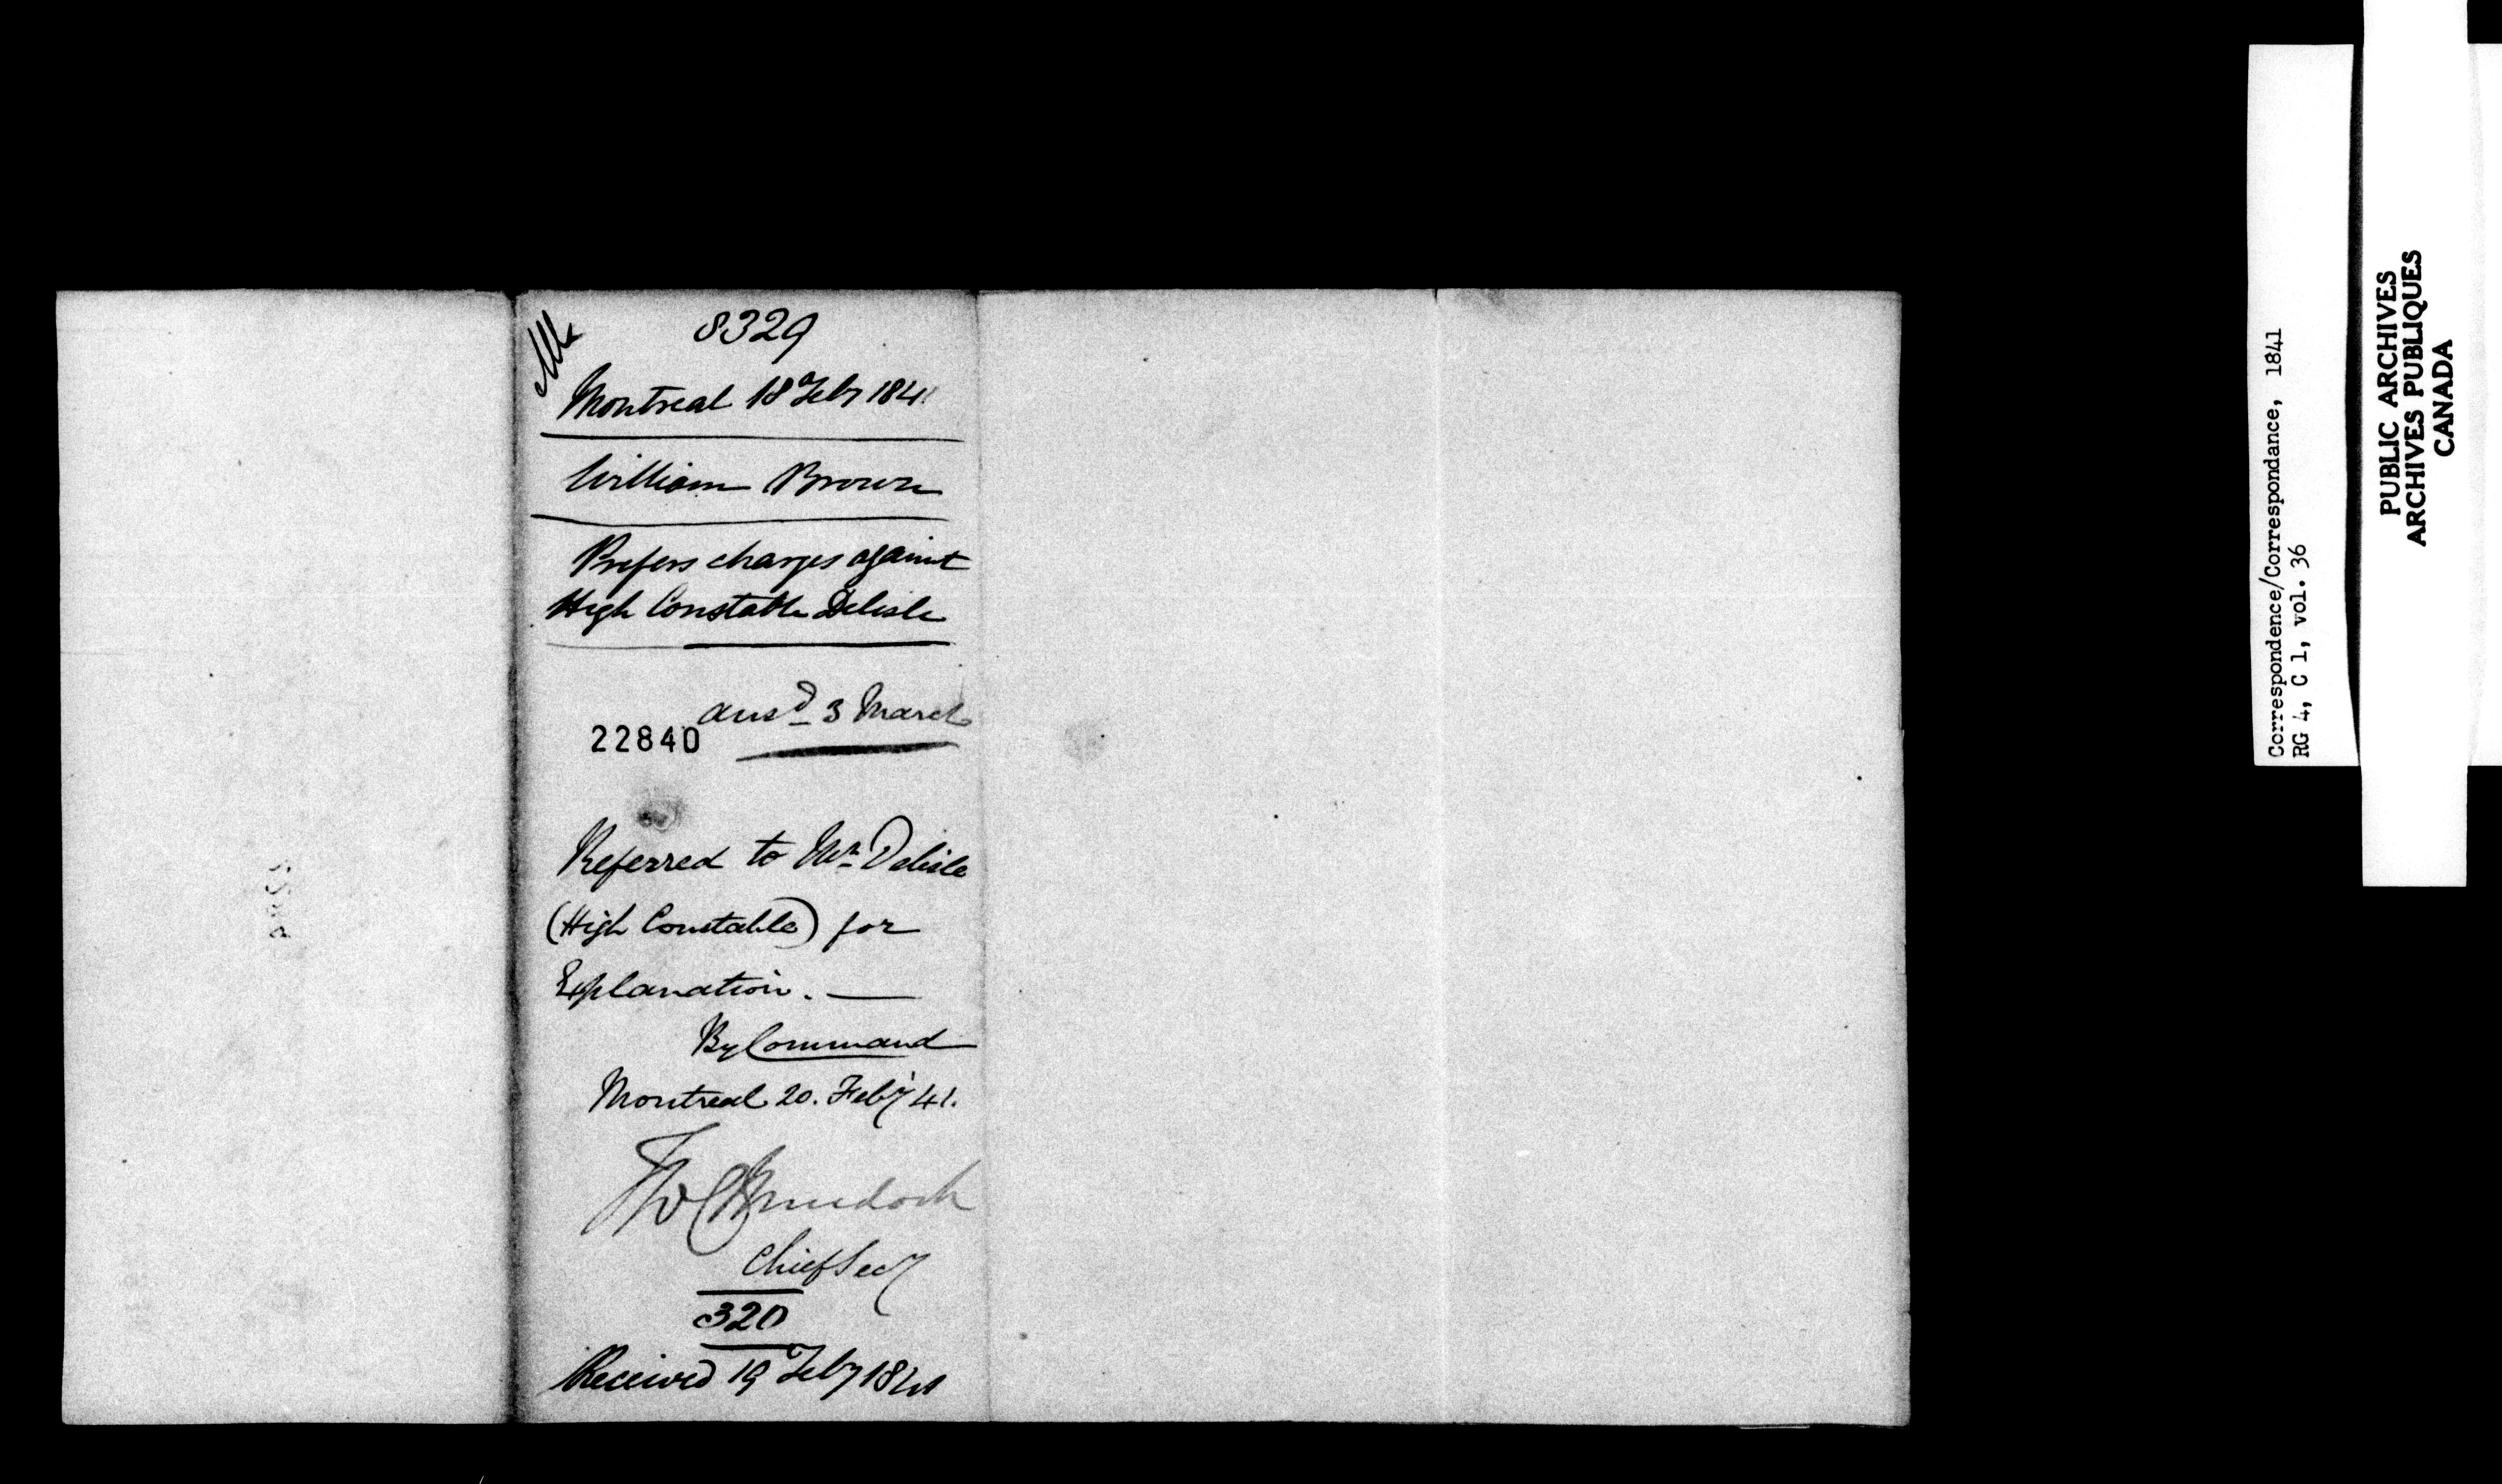 8329
Montreal 18 Feby 1841
William Brown
Prefers charges against
High Constable Delisle
ansd 3 March
22840
Referred to Mr Delisle
(High Constable) for
Explanation. —
By Command
Montreal 20. Feby 41.
Chief Secy
320
Received 19 Feby 1841
Correspondence/Correspondance, 1841
RG 4, C 1, vol. 36
PUBLIC ARCHIVES
ARCHIVES PUBLIQUES
CANADA